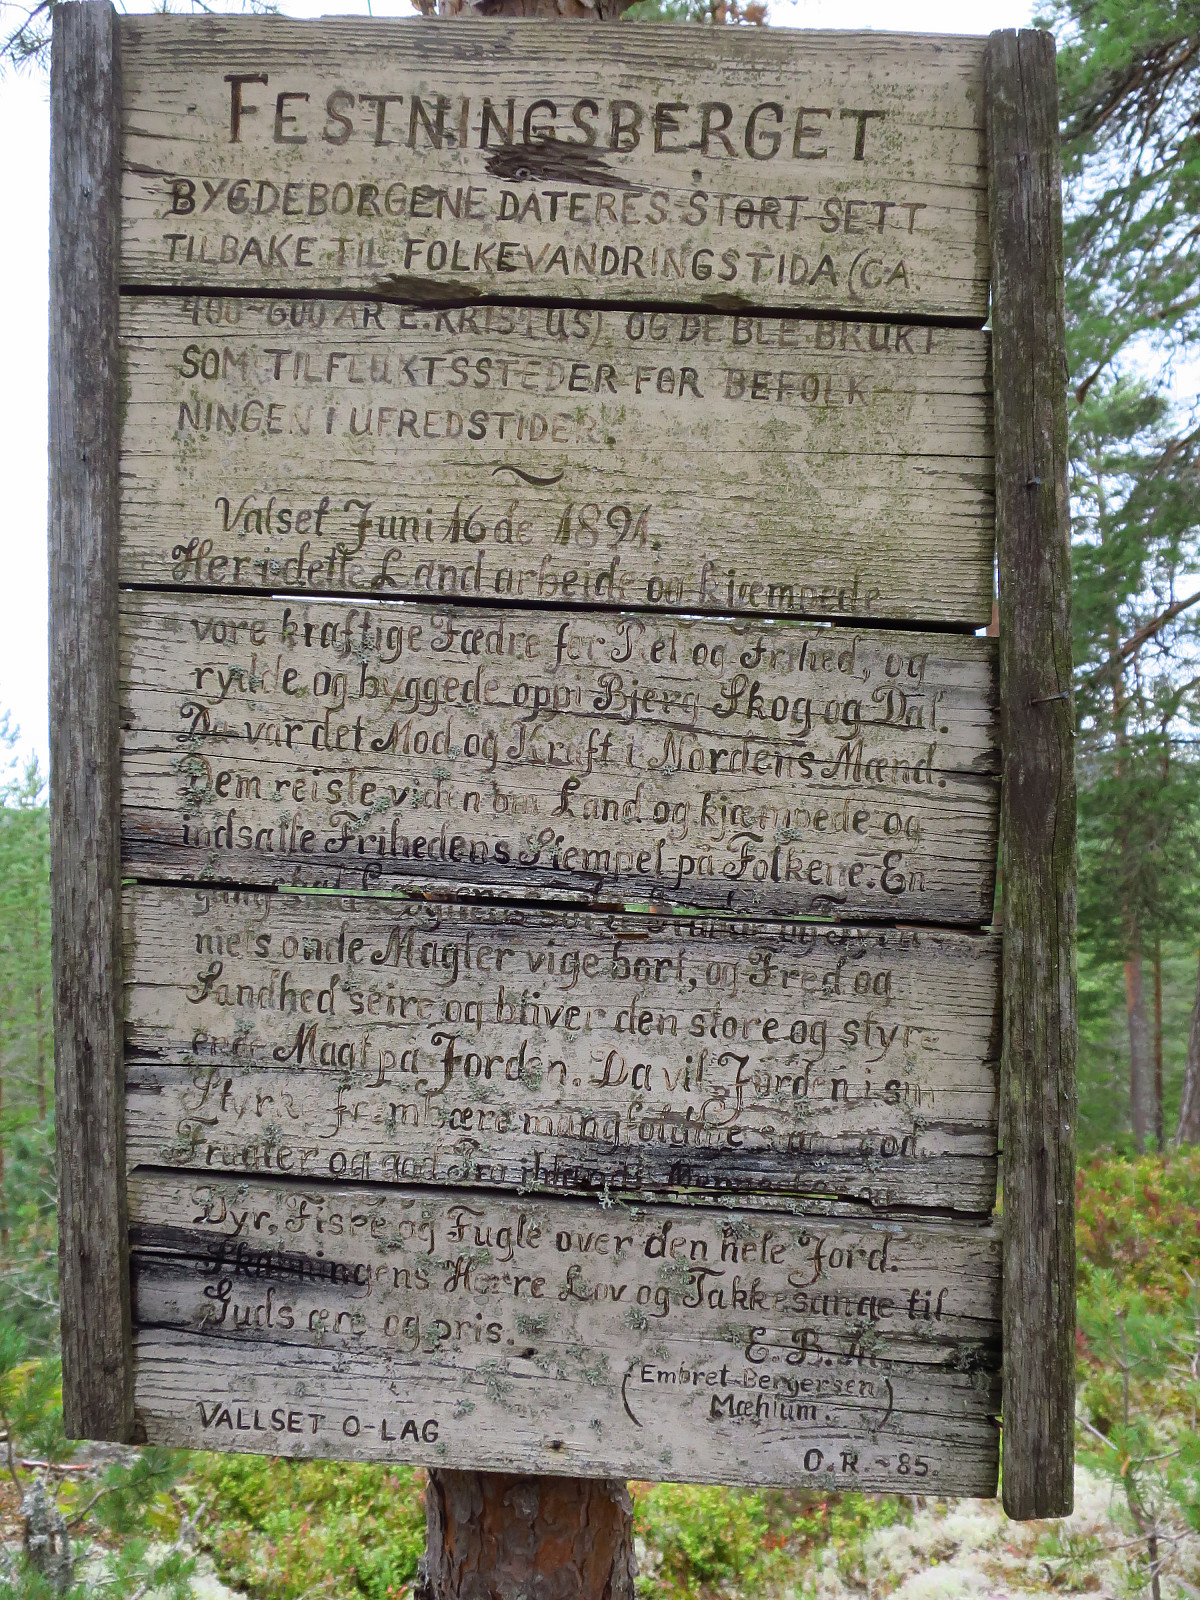 FESTNINGSBERGET
BYGDEBORGENE DATERES STORT SETT
TILBAKE TIL FOLKEVANDRINGSTIDA (CA.
400-600 ÅR E.KRISTUS) OG DE BLE BRUKT
SOM TILFLUKTSSTEDER FOR BEFOLK-
NINGEN I UFREDSTIDER.
Valset Juni 16 de 1894.
Her i dette Land arbeide og kjæmpede
vore kraftige Fædre for Ret og Frihed, og
rydde og byggede opp i Bjerg Skog og Dal.
Da var det Mod og Kraft i Nordens Mænd.
Dem reiste viden om Land og kjæmpede og
indsatte Frihedens Stempel på Folkene. En
gang skal Løgnens og
niets onde Magter vige bort, og Fred og
Sandhed seire og bliver den store og styr-
ende Magt på Jorden. Da vil Jorden i sin
Styrke frembære mangfoldige god
Frugter og god Tro iblandt Menneske og
Dyr, Fiske og Fugle over den hele Jord.
Skabningens Herre Lov og Takkesange til
Guds ære og pris.
E. B. M.
(Embret Bergersen
Mæhlum.)
VALLSET O-LAG
O.R.-85.